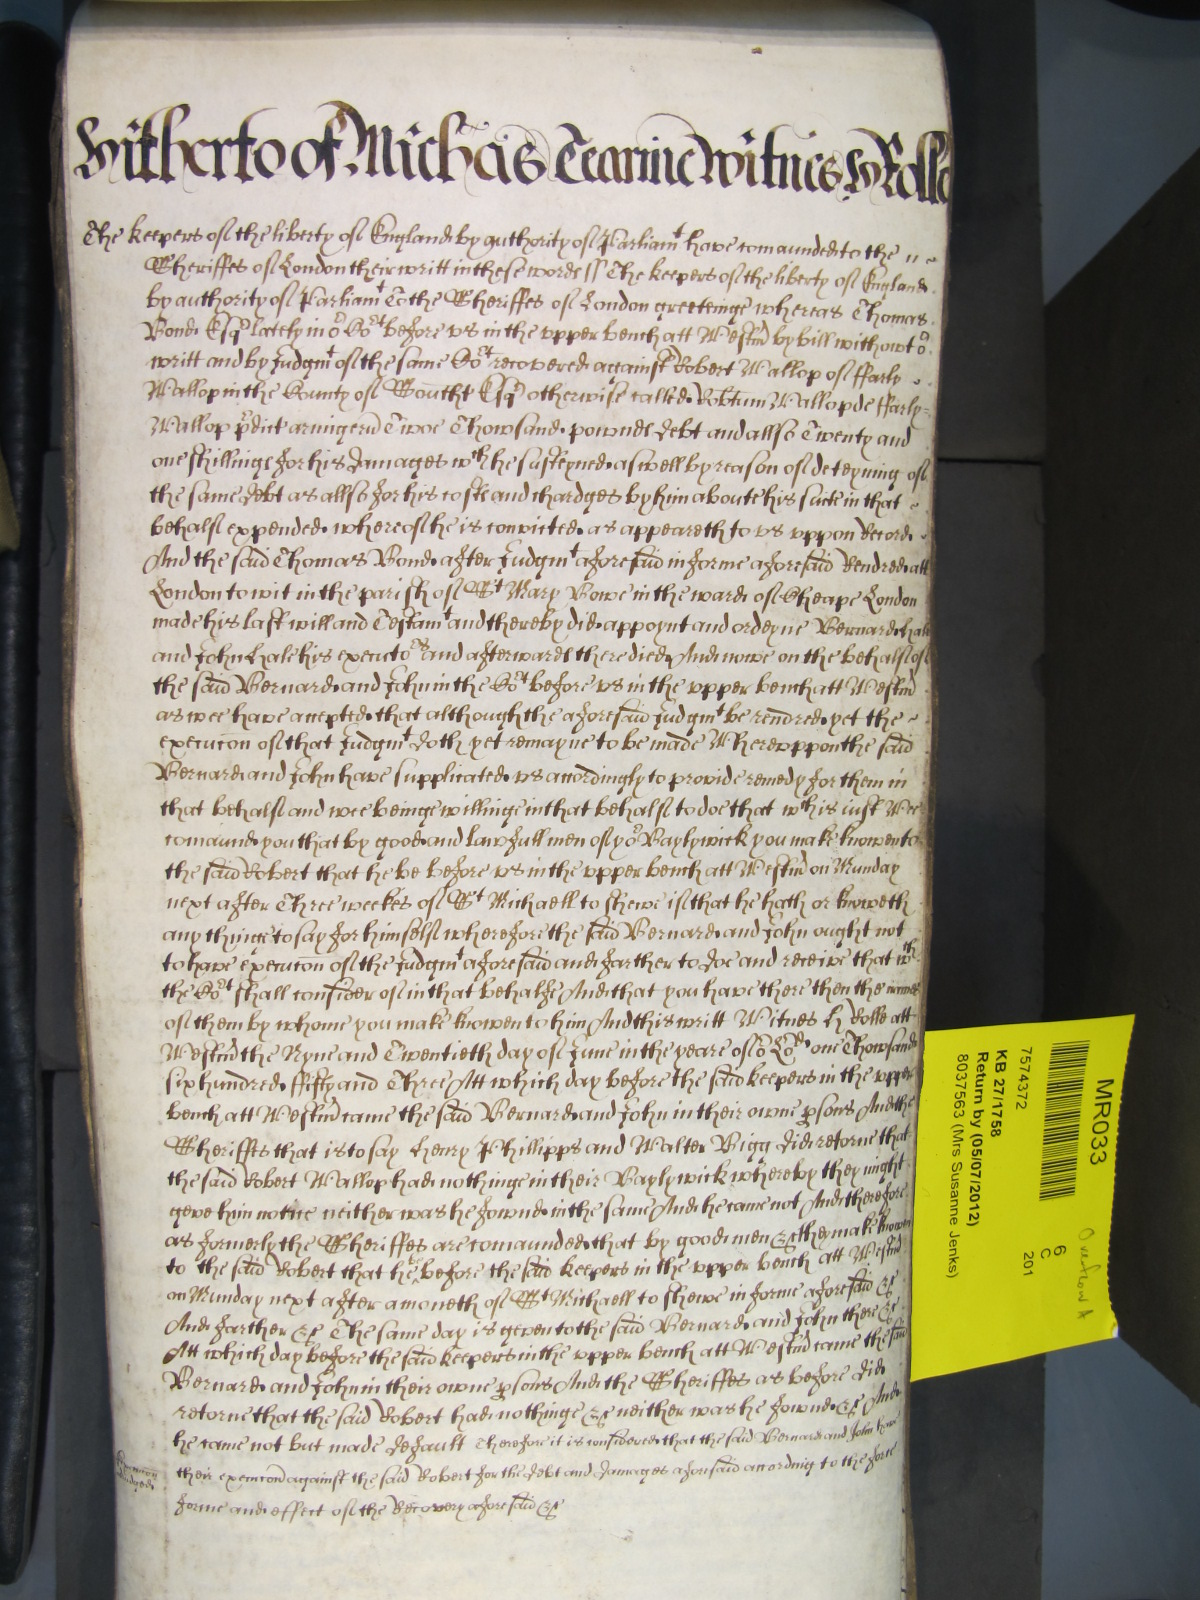 Hitherto of Micheis Tearme Witnes H Rolle
The keepers of the liberty of England by authority of Parliamt have comaunded to the
Sheriffes of London their writt in these words ss The keepers of the liberty of England
by authority of Parliamt To the Sheriffes of London greeteinge whereas Thomas
Bond Esqr lately in or Cort before us in the upper bench att Westmr by bill without or
writt and by Judgmt of the same Cort recovered against Robert Wallop of ffarly
Wallop in the County of Southt Esqr otherwise called Robtum Wallop de ffarly
Wallop pdict armigerū Twoe Thowsand pownds debt and allso Twenty and
one skillings for his damages wch he susteyned aswell by reason of deteyning of
the same debt as allso for his costs and chardges by him aboute his suite in that
behalf expended whereof he is convicted as appeareth to us uppon Record
And the said Thomas Bond after Judgmt aforesaid in forme aforesaid Rendred att
London to wit in the parish of St Mary Bowe in the ward of Cheape London
made his last will and Testamt and thereby did appoynt and ordeyne Bernard Hale
and John Hale his executors and afterwards there died And nowe on the behalf of
the said Bernard and John in the Cort before us in the upper bench att Westmr
as wee have accepted that although the aforesaid Judgmt be rendred yet the
execucon of that Judgmt doth yet remayne to be made Whereuppon the said
Bernard and John have supplicated us accordingly to provide remedy for them in
that behalf and wee beinge willinge in that behalf to doe that wch is iust Wee
comaund you that by good and lawfull men of yor Baylywick you make knowen to
the said Robert that he be before us in the upper bench att Westmr on Munday
next after Three weekes of St Michaell to shewe if that he hath or knoweth
any thinge to say for himself wherefore the said Bernard and John ought not
to have execucon of the Judgmt aforesaid and farther to doe and receive that wch
the Cort shall consider of in that behalfe And that you have there then the names
of them by whome you make knowen to him And this writt Witnes H Rolle att
Westmr the Nyne and Twentieth day of June in the yeare of or Lord one Thowsand
six hundred fiffty and Three Att which day before the said keepers in the upper
bench att Westmr came the said Bernard and John in their owne psons And the
Sheriffes that is to say Henry Phillipps and Walter Bigg did retorne that
the said Robert Wallop had nothinge in their Baylywick whereby they might
geve him notice neither was he fownd in the same And he came not And therefore
as formerly the Sheriffes are comaunded that by good men &c they make knowen
to the said Robert that he before the said keepers in the upper bench att Westmr
on Munday next after a moneth of St Michaell to shewe in forme aforesaid &c
And farther &c The same day is geven to the said Bernard and John there &c
Att which day before the said keepers in the upper bench att Westmr came the said
Bernard and John in their owne psons And the Sheriffes as before did
retorne that the said Robert had nothinge &c neither was he fownd &c And
he came not but made default Therefore it is considered that the said Bernard and John have
their execucon against the said Robert for the debt and damages aforesaid according to the force
forme and effect of the Recovery aforesaid &c
MR033
7574372
KB 27/1758
Return by (05/07/2012)
8037563 (Mrs Susanne Jenks)
6
C
201